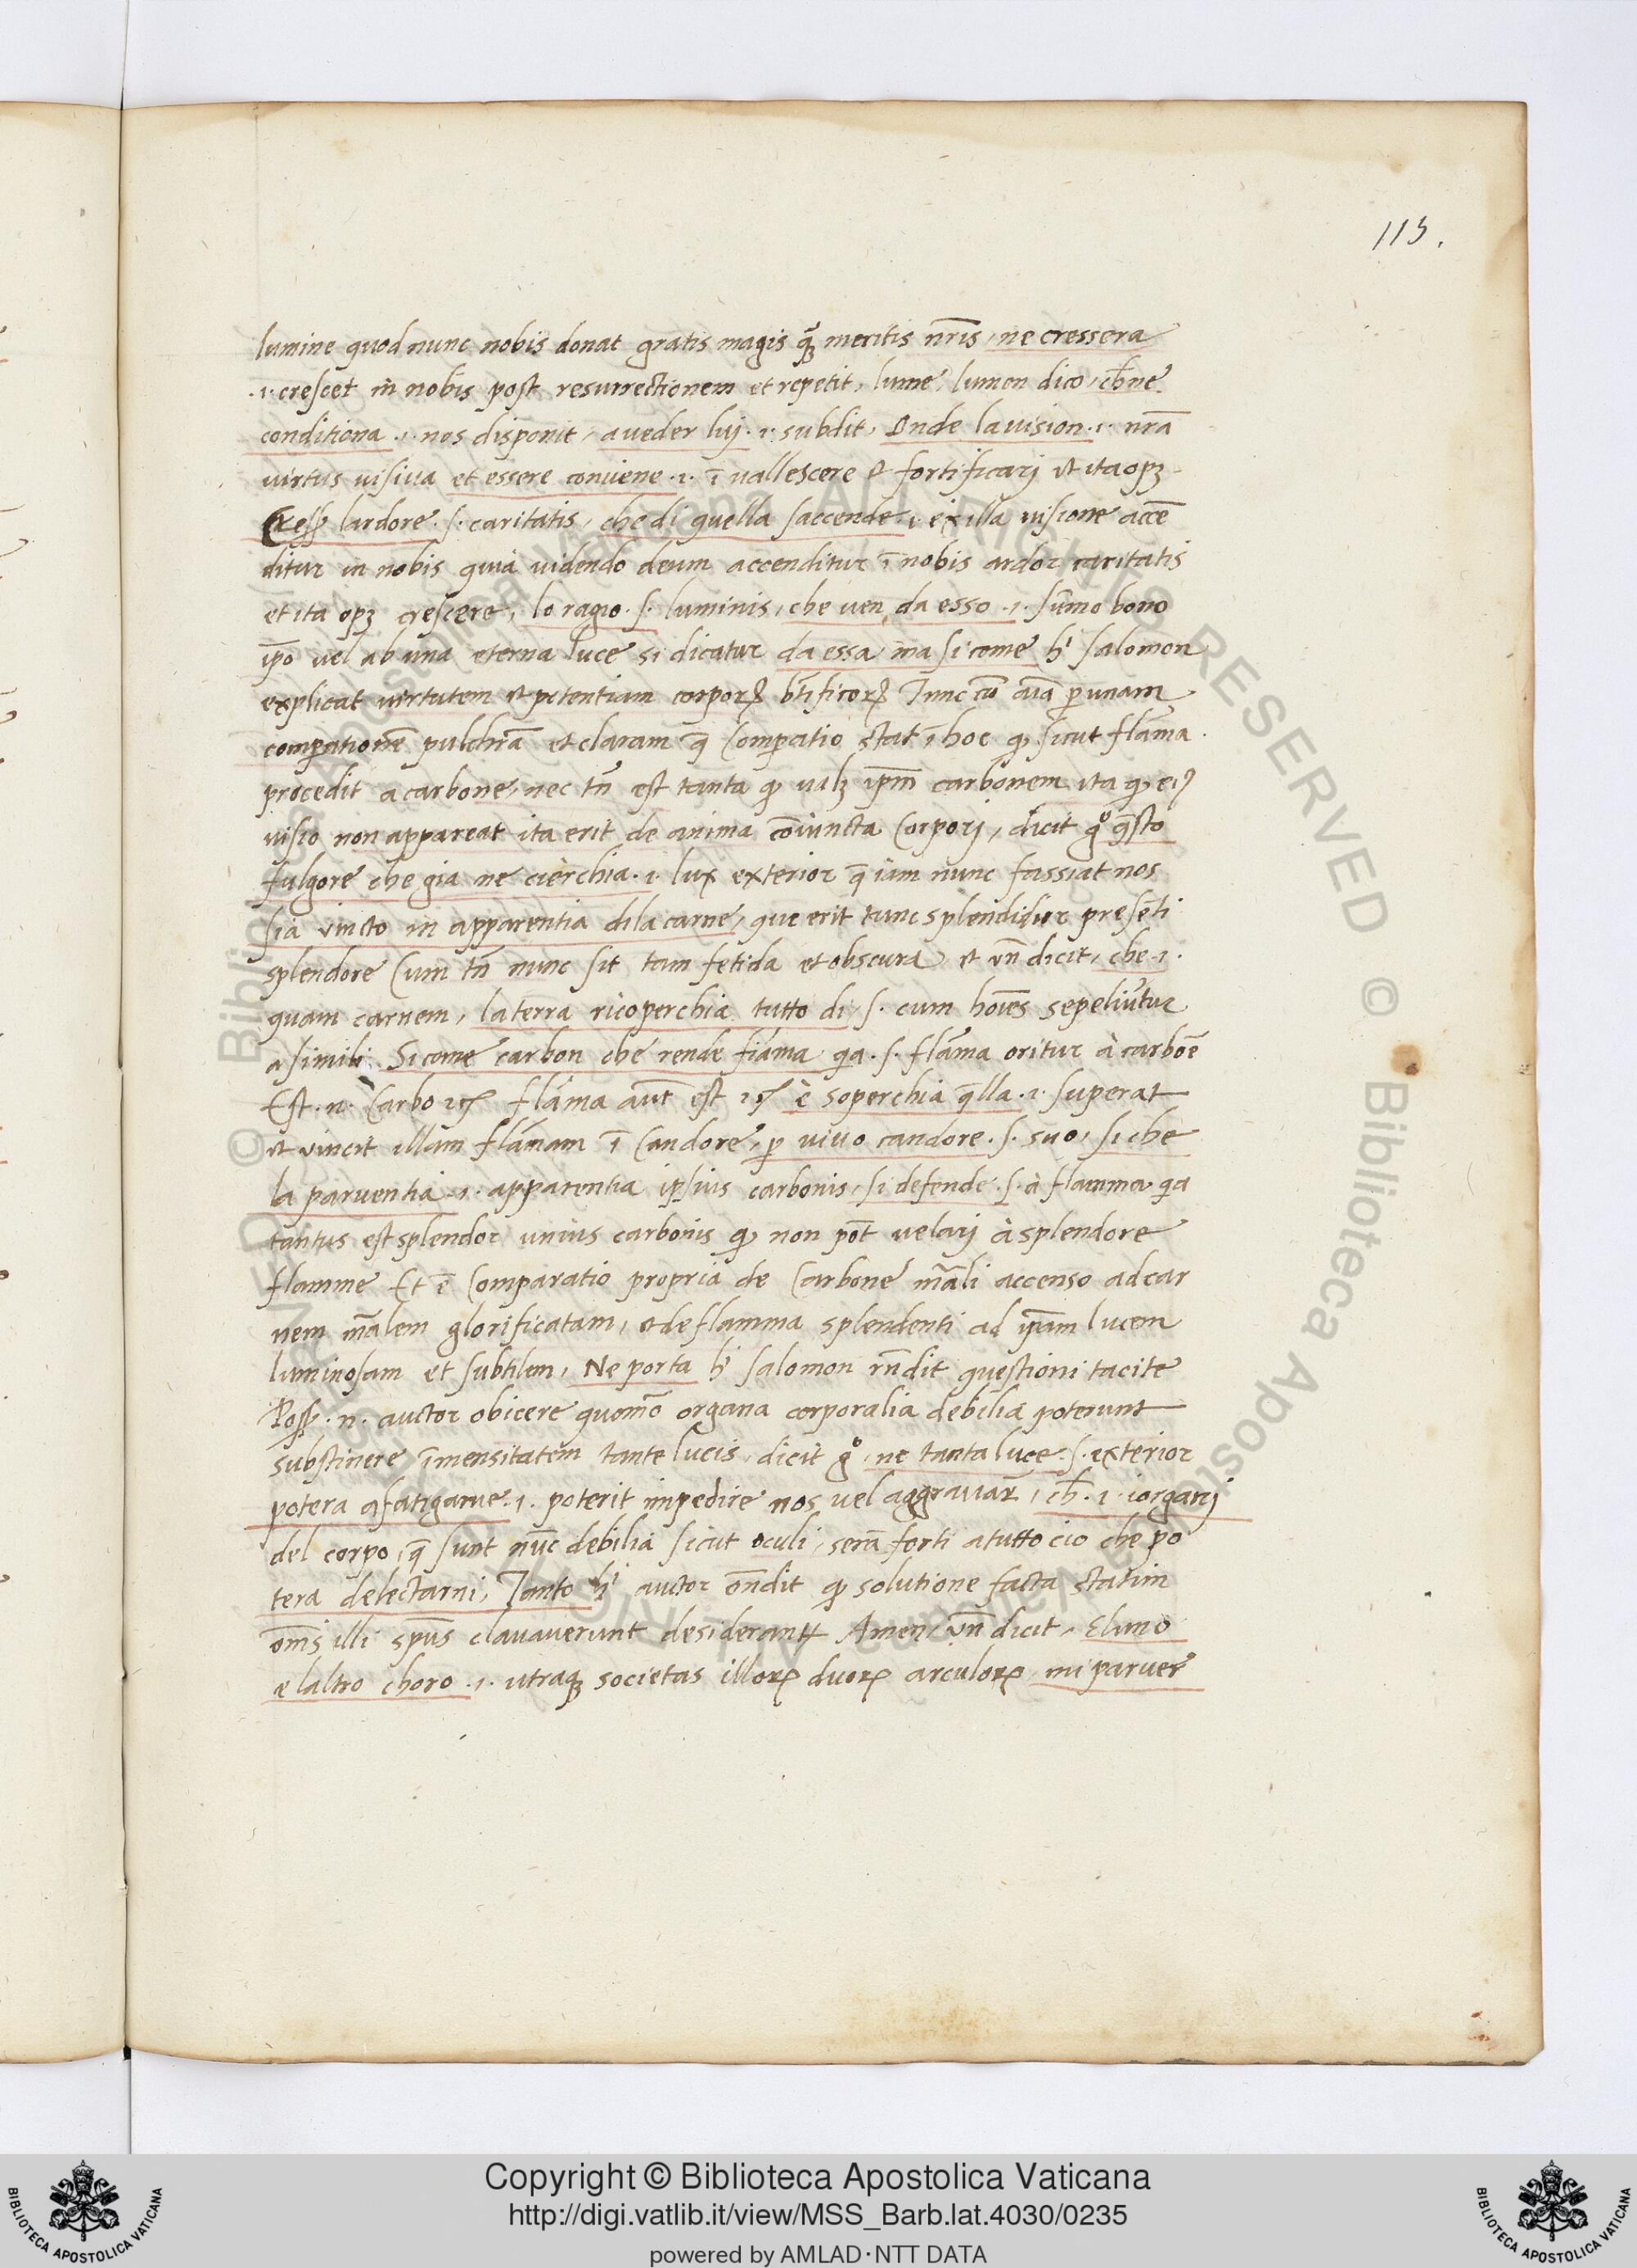 113.
lumine quod nunc nobis donat gratis magis qꝫ meritis nr̄is, ne cressera
.1. crescet in nobis post resurrectionem et repetit, lume, lumen dico, ch̄ ne
conditiona .1. nos disponit, a veder luj .1. subdit, Onde la vision .1. nr̄a
virtus visiva et essere conviene .1. ī vallescere & fortificarj et ita opꝫ
lardore .s. caritatis, che di quella saccende .1. ex illa visione accē
ditur in nobis quia videndo deum accenditur ī nobis ardor caritatis
et ita opꝫ crescere, lo ragio .s. luminis, che ven da esso .1. sūmo bono
ip̄o vel ab una eterna luce si dicatur da essa, ma si come h' salomon
explicat virtutem et potentiam corporꝝ bt̄ificorꝝ Tunc cū aīa ꝑ unam
comꝑationē pulchrā et claram q̄ Comꝑatio stat ī hoc qͥ sicut flāma
procedit a carbone, nec tn̄ est tanta qͥ ip̄m carbonem ita qͥ eiꝰ
visio non appareat ita erit de anima cōiuncta Corporj, dicit gͦ q̄sto
fulgore che gia ne cierchia .1. lux exterior q̄ iam nunc fassiat nos
fia vincto in apparentia dila carne, que erit tunc splendidior presēti
splendore Cum tn̄ nunc sit tam fetida et obscura et vn̄ dicit, che .1.
quam carnem, la terra ricoperchia tutto di .s. cum hoīes sepeliūtur
a simili. Si come carbon che rende fiāma qa .s. flāma oritur à carbōe
Est .n. Carbo flāma aut̄ est è soperchia q̄lla .1. superat
et vincit illam flāmam ī Candore, ꝑ vivo candore .s. suo, si che
la parventia .1. apparentia ipsius carbonis, si defende .s. à flamma qa
tantus est splendor unius carbonis qͥ non pōt velarj à splendore
flamme Et ē Comparatio propria de Carbone mālī accenso ad car
nem mālem glorificatam, et de flamma splendenti ad ip̄am lucem
luminosam et subtilem, Ne porta h' salomon rn̄dit questioni tacite
Posset .n. auctor obicere quomō organa corporalia debilia poterunt
substinere īmensitatem tante lucis, dicit gͦ, ne tanta luce .s. exterior
potera afatigarne .1. poterit impedire nos vel aggravare, ch̄ .1. iorganj
del corpo, q̄ sunt nūc debilia sicut oculi, serā forti a tutto cio che po
tera delectarni, Tanto h' auctor on̄dit qͥ solutione facta statim
om̄s illi sp̄us clavaverunt desiderantꝰ Amen, vn̄ dicit, Eluno
e laltro choro .1. utraqꝫ societas illorꝝ duorꝝ arculorꝝ, mi parver
Copyright © Biblioteca Apostolica Vaticana
http://digi.vatlib.it/view/MSS_Barb.lat.4030/0235
powered by AMLAD·NTT DATA
BIBLIOTECA APOSTOLICA VATICANA
BIBLIOTECA APOSTOLICA VATICANA